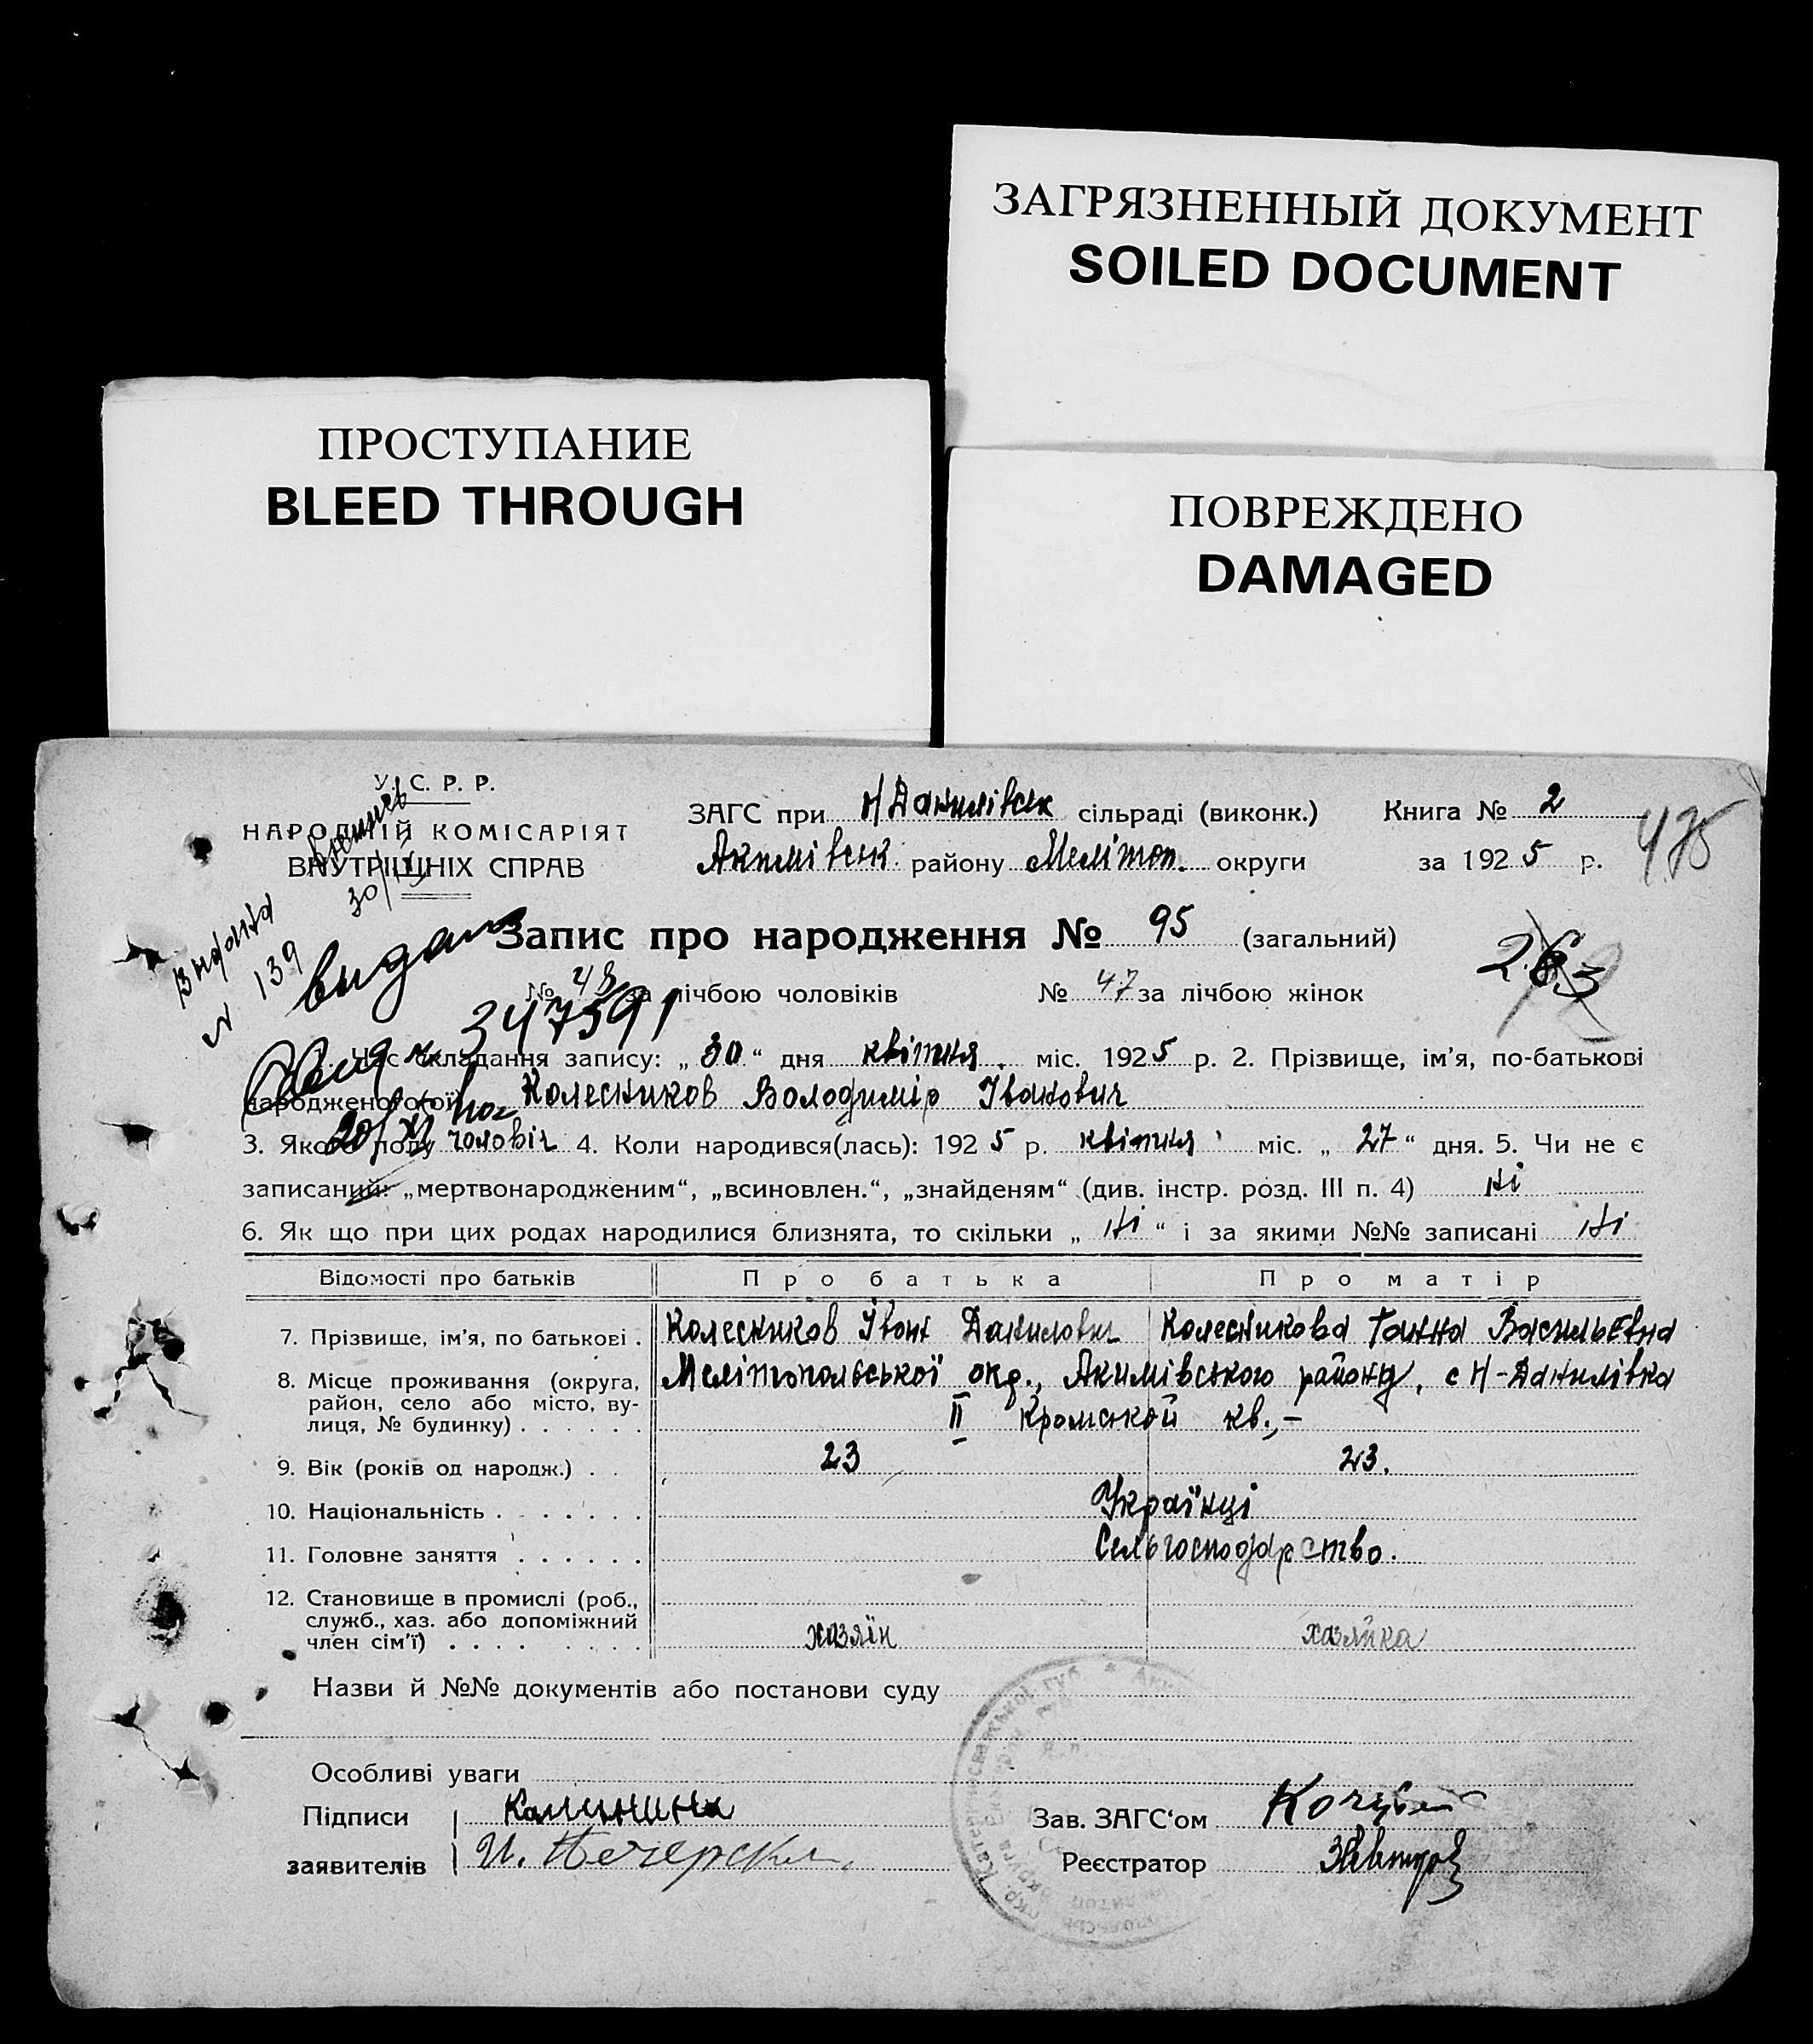 ЗАГРЯЗНЕННЫЙ ДОКУМЕНТ
SOILED DOCUMENT
ПРОСТУПАНИЕ
BLEED THROUGH
ПОВРЕЖДЕНО
DAMAGED
У. С. Р. Р.
НАРОДНІЙ КОМІСАРІЯТ
ВНУТРІШНІХ СПРАВ
ЗАГС при Н Данилівськ сільраді (виконк.) Книга № 2
Акимівськ. району Мелітоп. округи за 1925 р.
475
Видана
№ 139
видано
Запис про народження № 95 (загальний)
263
№ 48 за лічбою чоловіків № 47 за лічбою жінок
347591
Час складання запису: „ 30 “ дня квітня. міс. 1925 р. 2. Прізвище, ім’я, по-батькові
народженого(ої) Колесников Володимір Іванович
20/XI
3. Якого полу чоловіч 4. Коли народився(лась): 1925 р. квітня міс. „ 27 “ дня. 5. Чи не є
записаний: „мертвонародженим“, „всиновлен.“, „знайденям“ (див. інстр. розд. III п. 4) Ні
6. Як що при цих родах народилися близнята, то скільки „ Ні “ і за якими №№ записані Ні
Відомості про батьків Про батька Про матір
7. Прізвище, ім’я, по батькові . Колесников Іван Данилович Колесникова Ганна Васильевна
8. Місце проживання (округа, Мелітопольської окр., Акимівського району, с Н-Данилівка
район, село або місто, ву-
лиця, № будинку) . . . . . . II Кромской кв.,-
9. Вік (років од народж.) . . 23 23.
10. Національність . . . . . . . Українці
11. Головне заняття . . . . . . Сельгосподарство.
12. Становище в промислі (роб.,
служб., хаз. або допоміжний
член сім’ї) . . . . . . . . хазяїн хазяйка
Назви й №№ документів або постанови суду
Особливі уваги
Підписи Калинина Зав. ЗАГС‘ом
заявителів Реєстратор